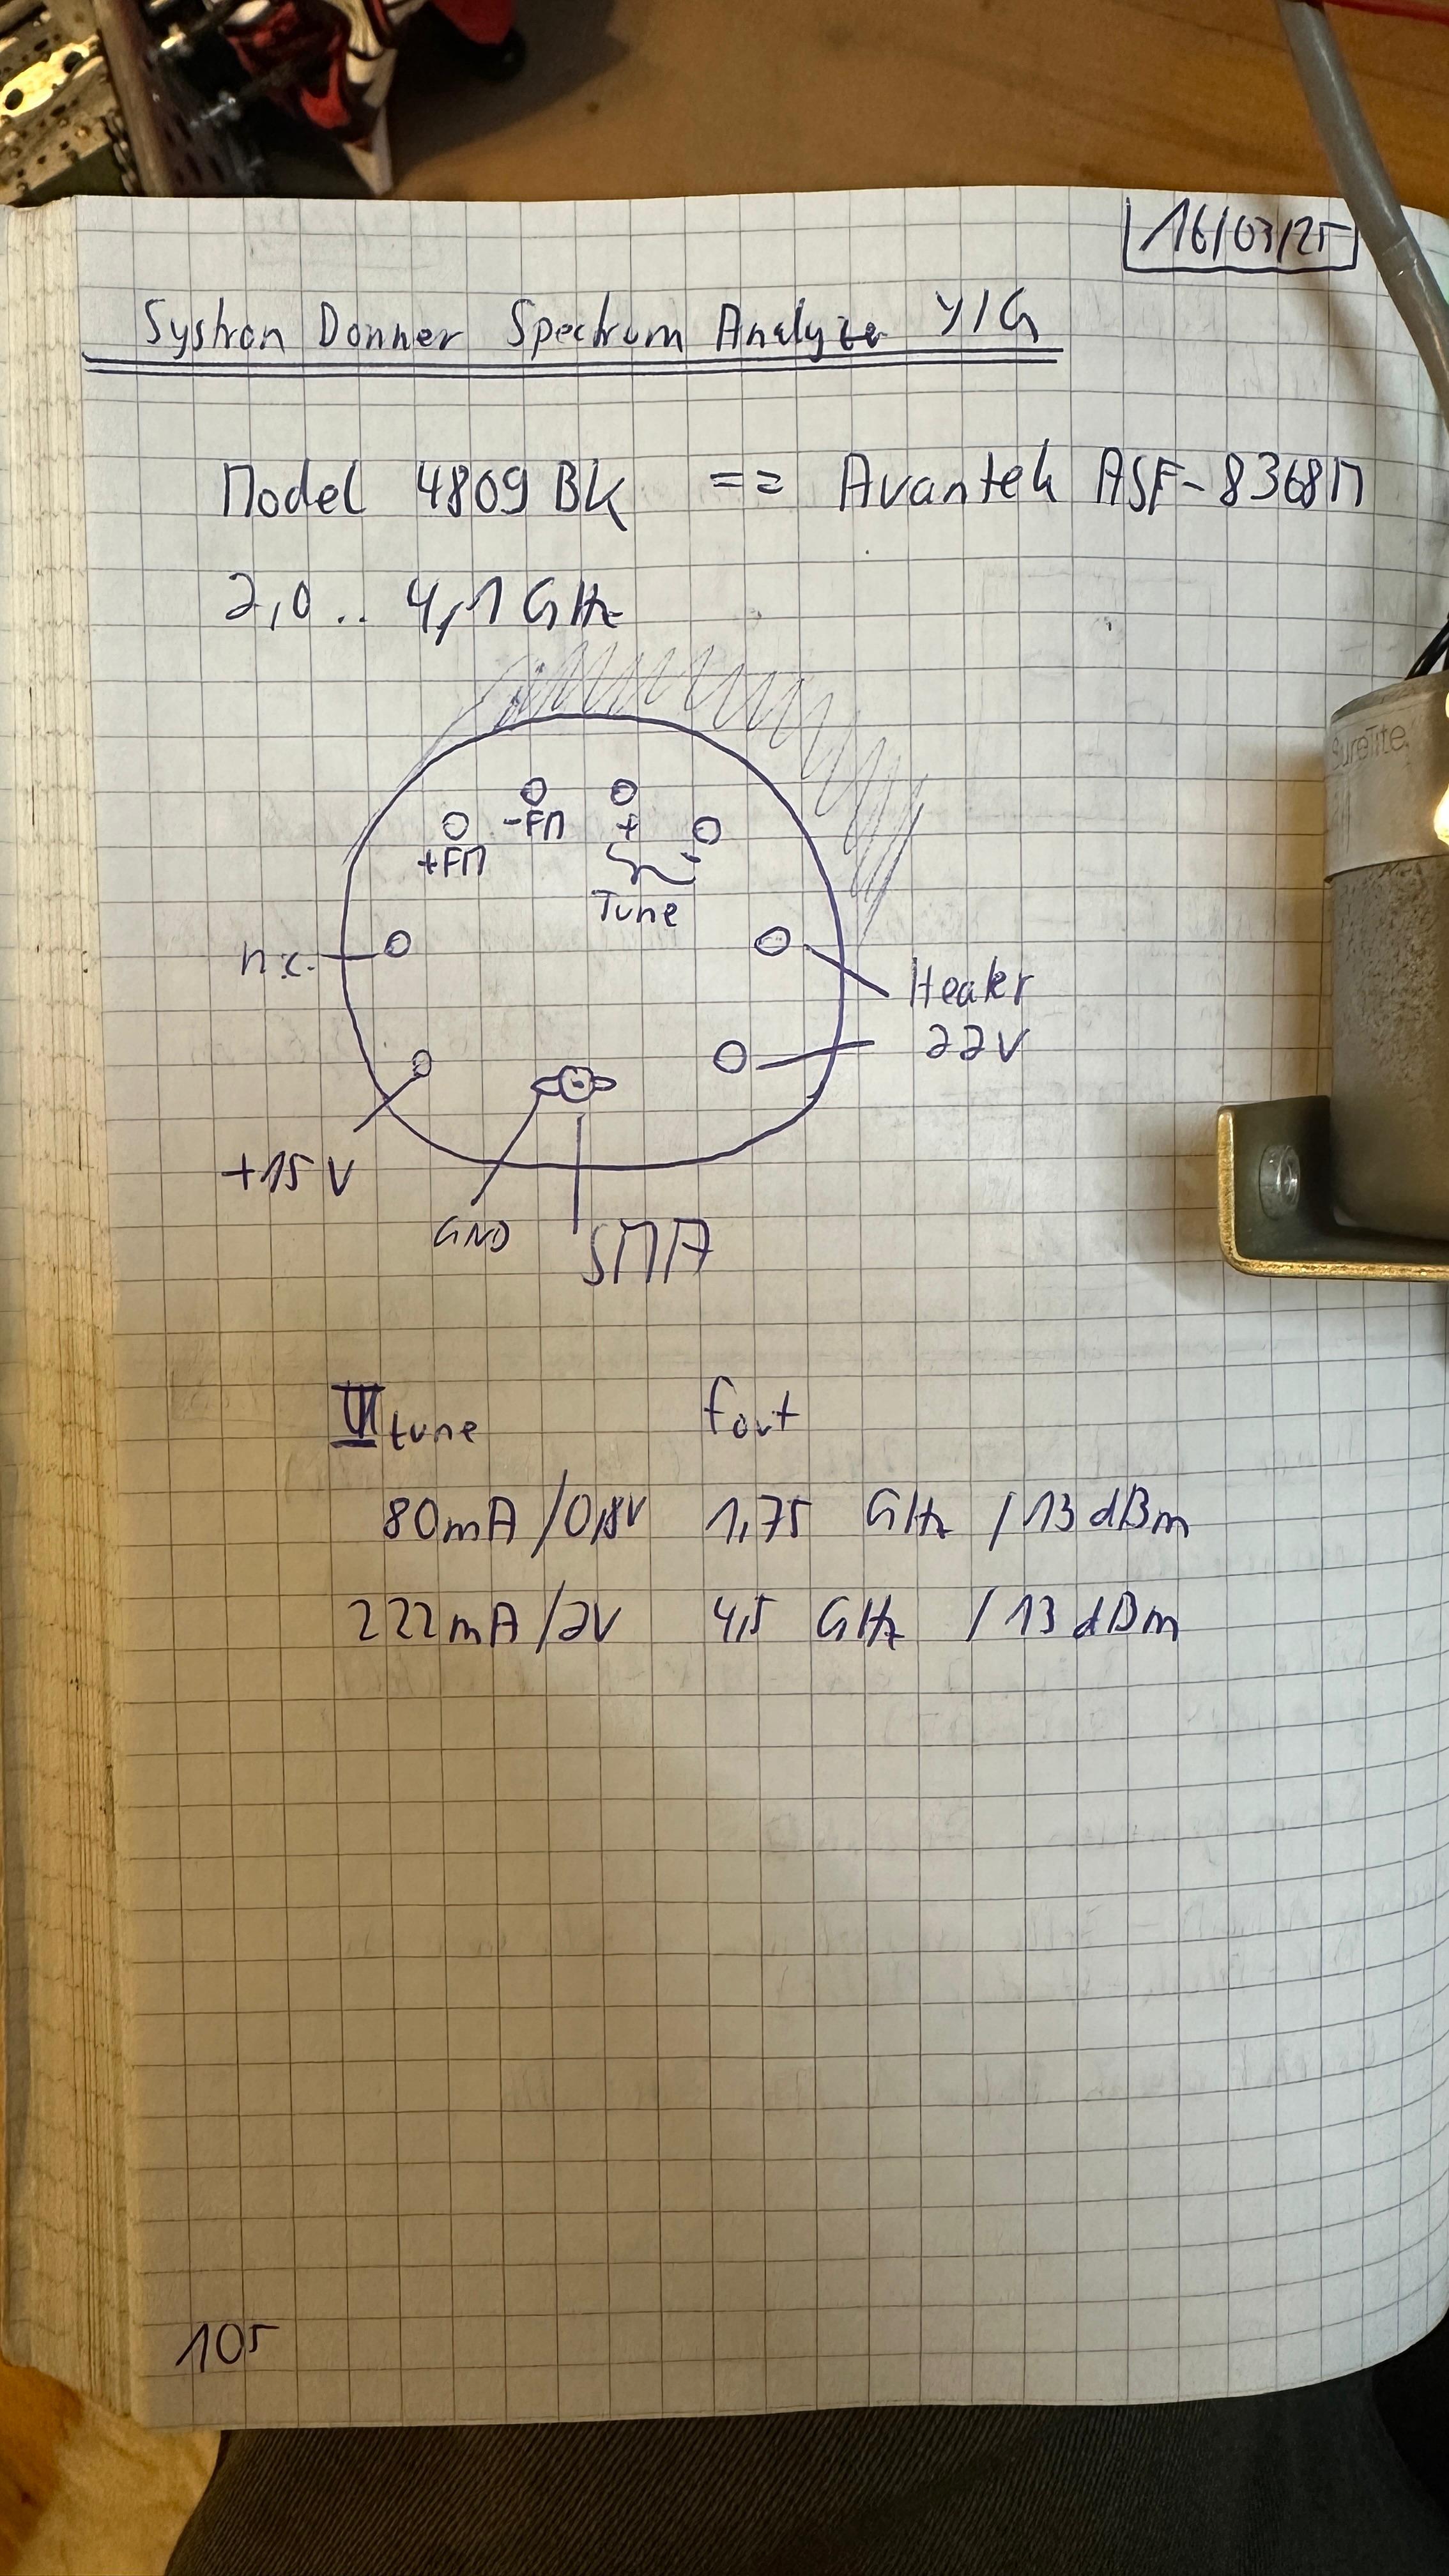 16/03/25
Systron Donner Spectrum Analyzer YIG
Model 4809 BK == Avantek ASF-8368M
2,0 .. 4,1 GHz
-FM +
+FM -
Tune
n.c.
Heater
22V
+15V
GND SMA
I tune fout
80mA/0,8V 1,75 GHz / 13 dBm
222mA/2V 4,5 GHz / 13 dBm
105
SureTite